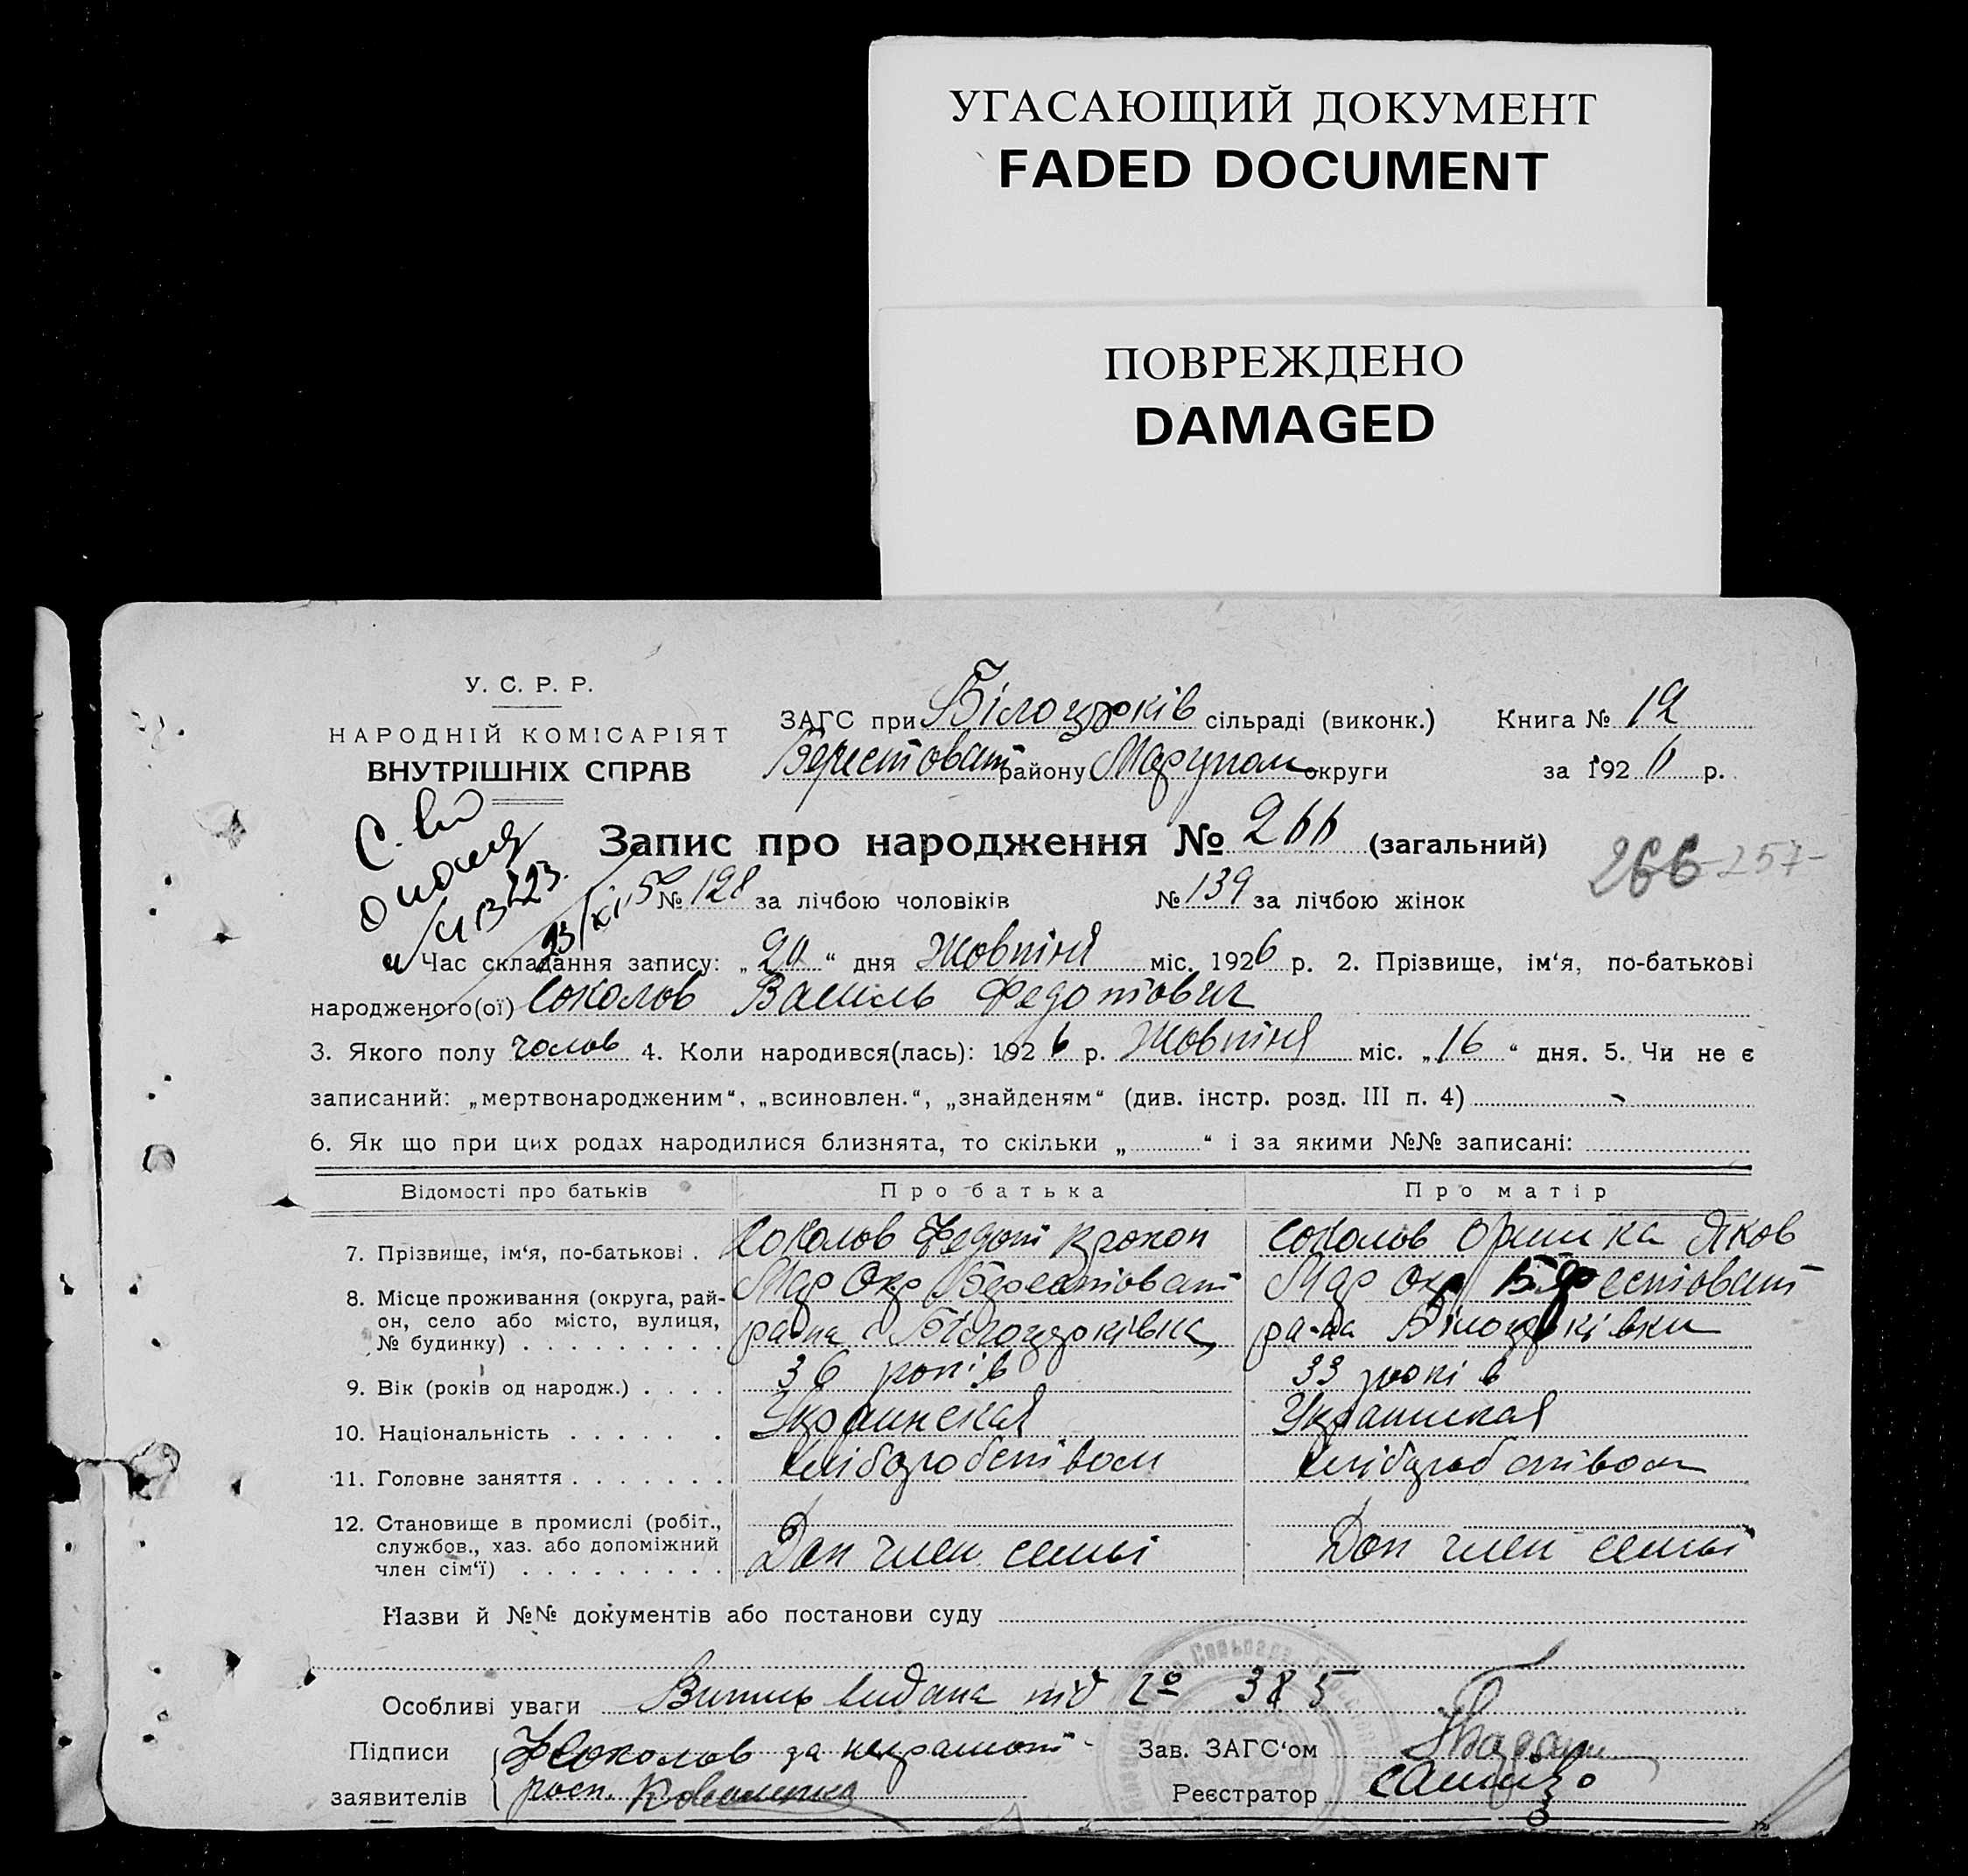 УГАСАЮЩИЙ ДОКУМЕНТ
FADED DOCUMENT
ПОВРЕЖДЕНО
DAMAGED
У. С. Р. Р.
НАРОДНІЙ КОМІСАРІЯТ
ВНУТРІШНІХ СПРАВ
ЗАГС при Білоцрків сільраді (виконк.) Книга № 19
Берестоват району Марупол округи за 1926 р.
Запис про народження № 266 (загальний)
266 257
№ 128 за лічбою чоловіків № 139 за лічбою жінок
23/XI 50
Час складання запису: „20“ дня Жовтня міс. 1926 р. 2. Прізвище, ім‘я, по-батькові
народженого(ої) Соколов Василь Федотович
3. Якого полу чолов 4. Коли народився(лась): 1926 р. Жовтня міс. „16“ дня. 5. Чи не є
записаний: „мертвонародженим“, „всиновлен.“, „знайденям“ (див. інстр. розд. III п. 4)
6. Як що при цих родах народилися близнята, то скільки „ “ і за якими №№ записані:
Відомості про батьків Про батька Про матір
7. Прізвище, ім‘я, по-батькові . Соколов Федот Прокоп Соколов Оришка Яков
8. Місце проживання (округа, рай- Мар Окр Берестоват Мар Окр Берестоват
он, село або місто, вулиця, ра-на с Білоцрківка ра-на Білоцрківки
№ будинку)
9. Вік (років од народж.) 36 років 33 років
10. Національність Украинская Украинская
11. Головне заняття хлібороб­ством хлібороб­ством
12. Становище в промислі (робіт.,
службов., хаз. або допоміжний Доп член семьі Доп член семьі
член сім‘ї)
Назви й №№ документів або постанови суду
Особливі уваги Випись видана під № 385
Підписи Ф Соколов за неграмот Зав. ЗАГС‘ом
заявителів росп. Коваленко Реєстратор